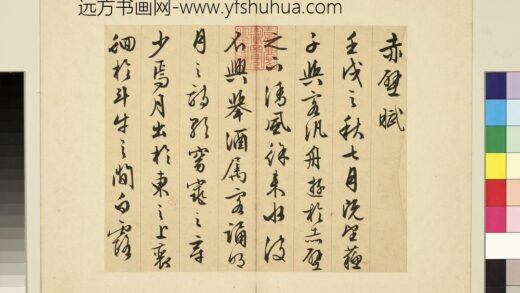 远方书画网-www.yfshuhua.com
赤壁賦
壬戌之秋七月既望蘇
子與客汎舟遊於赤壁
之下清風徐來水波
不興舉酒屬客誦明
月之詩歌窈窕之章
少焉月出於東之上裵
徊於斗牛之間白露